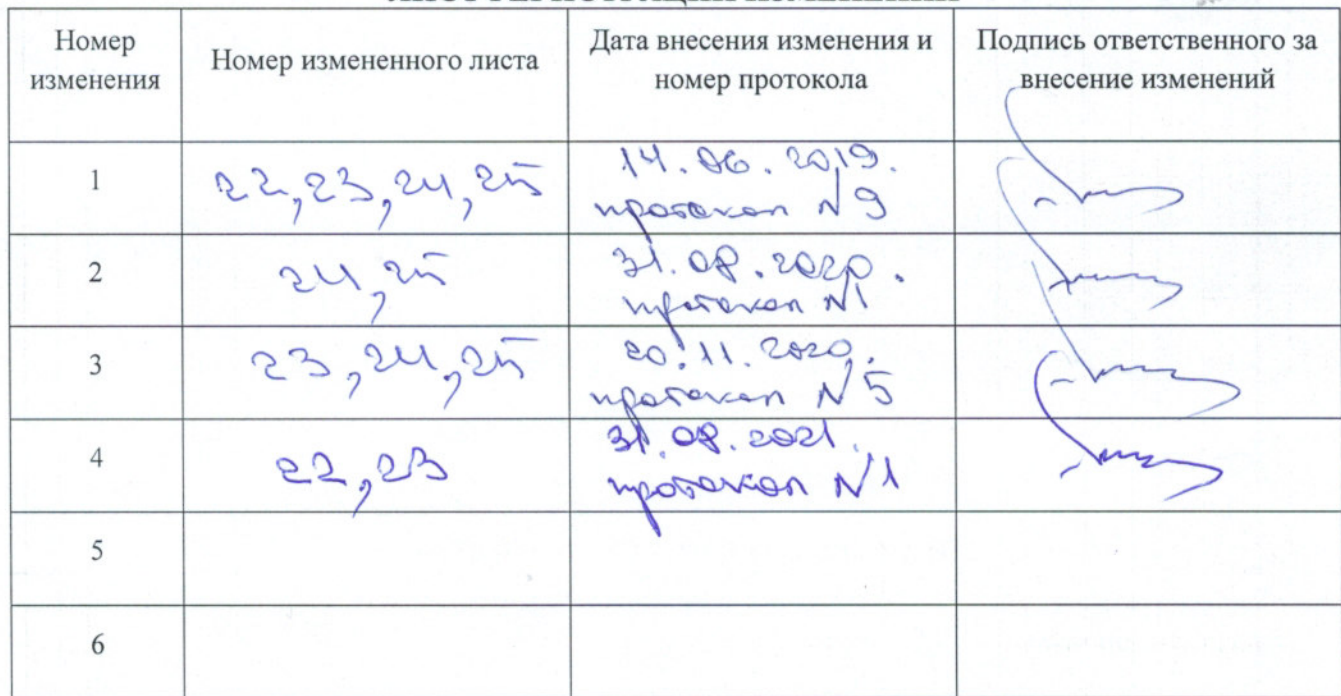 ЛИСТ РЕГИСТРАЦИИ ИЗМЕНЕНИЙ
Номер изменения
Номер измененного листа
Дата внесения изменения и
номер протокола
Подпись ответственного за
внесение изменений
1
22, 23, 24, 25
14.06.2019.
протокол №9
2
24, 25
31.08.2020.
протокол №1
3
23, 24, 25
20.11.2020.
протокол №5
4
22, 23
31.08.2021.
протокол №1
5
6